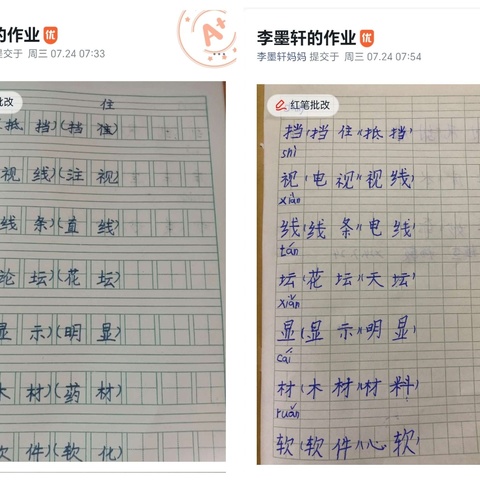 的作业 优
提交于 周三 07.24 07:33
批改
A+
住
抵挡)(挡准)
视线)(注视)
线条)(直线)
论坛)(花坛)
显示)(明显)
木材)(药材)
软件)(软化)
李墨轩的作业 优
李墨轩妈妈 提交于 周三 07.24 07:54
红笔批改
挡(挡住)(抵挡)
shì
视(电视)(视线)
xiàn
线(线条)(电线)
tán
坛(花坛)(天坛)
xiǎn
显(显示)(明显)
cái
材(木材)(材料)
ruǎn
软(软件)(心软)